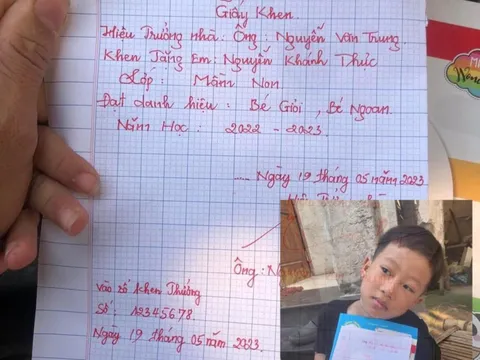 Giấy Khen.
Hiệu Trưởng nhà: Ông: Nguyễn Văn Trung.
Khen Tặng Em: Nguyễn Khánh Thức
Lớp: Mầm Non
Đạt danh hiệu: Bé Giỏi, Bé Ngoan.
Năm Học: 2022 - 2023.
..... Ngày 19 tháng 05 năm 2023
Ông:
Vào sổ khen Thưởng
Số: 12345678.
Ngày 19 tháng 05 năm 2023.